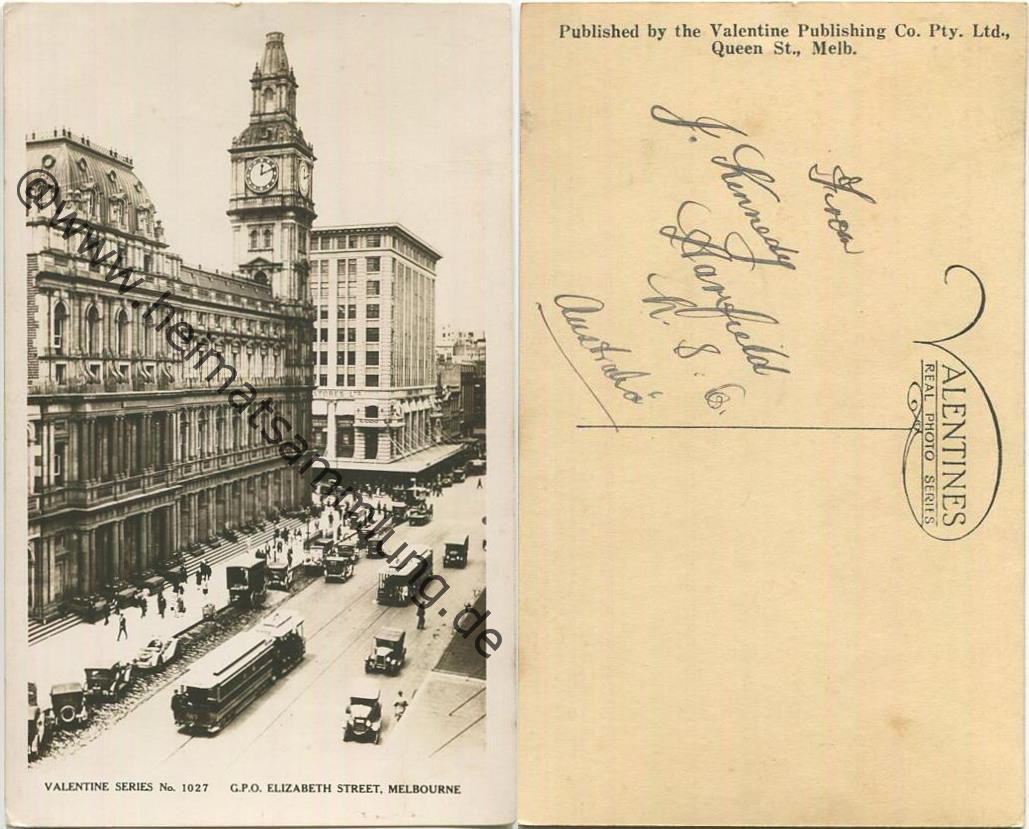 VALENTINE SERIES No. 1027 G.P.O. ELIZABETH STREET, MELBOURNE
@www.heimatsammlung.de
Published by the Valentine Publishing Co. Pty. Ltd.,
Queen St., Melb.
J. Kennedy
Australia
VALENTINES
REAL PHOTO SERIES